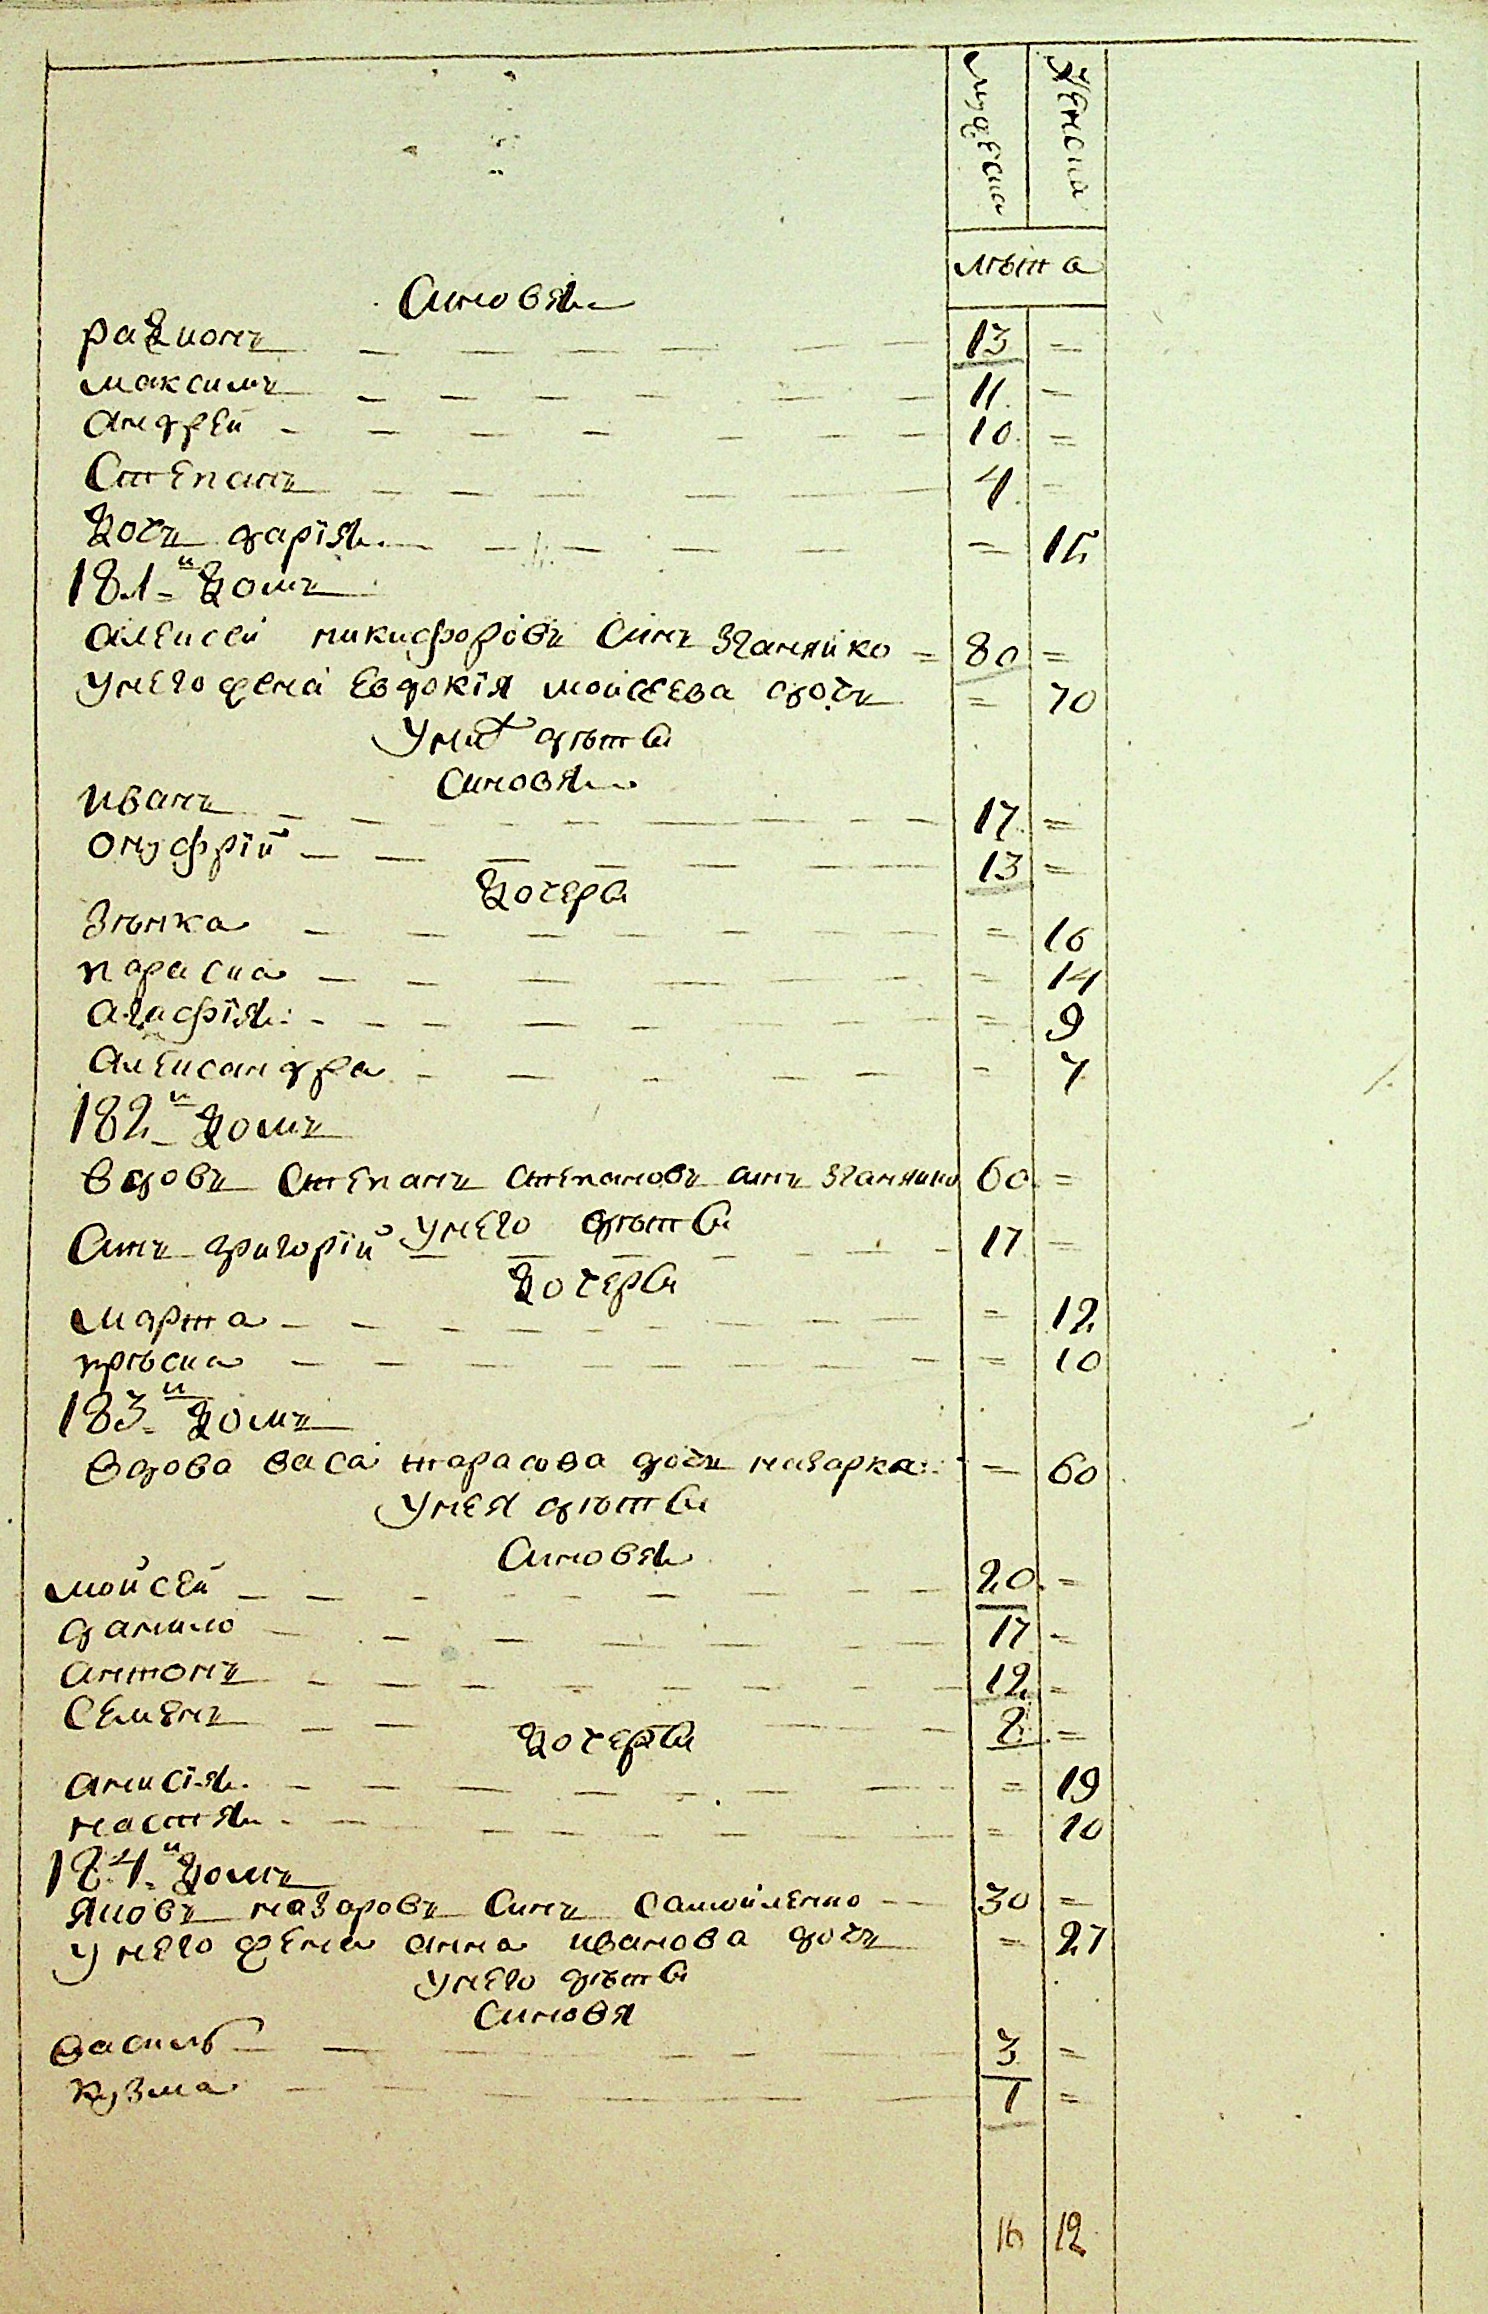 мужеска женска
лѣта
Синовя
радионъ 13 =
максимъ 11 =
андрей 10 =
Степанъ 4 =
дочъ дарїя = 15
181-й домъ
алексей никифоровъ Синъ Зганяйко = 80 =
унего жена Евдокїя мойсеева дочъ = 70
Уних дѣти
Синовя
иванъ 17 =
онуфрїй 13 =
дочери
Зѣнка = 16
параска = 14
агафїя = 9
александра = 7
182-й домъ
вдовъ Степанъ степановъ синъ Зганяйко 60 =
унего дѣти
Синъ григорїй 17 =
дочери
марта = 12
прѣска = 10
183-й домъ
вдова васа тарасова дочъ назарка = 60
Унея дѣти
Синовя
мойсей 20 =
данило 17 =
антонъ 12 =
Семенъ 8 =
дочери
анисїя = 19
настя = 10
184-й домъ
яковъ назаровъ Синъ Самойленко 30 =
Унего жена анна иванова дочъ = 27
Унего дѣти
Синовя
василь 3 =
кузма 1 =
16 12